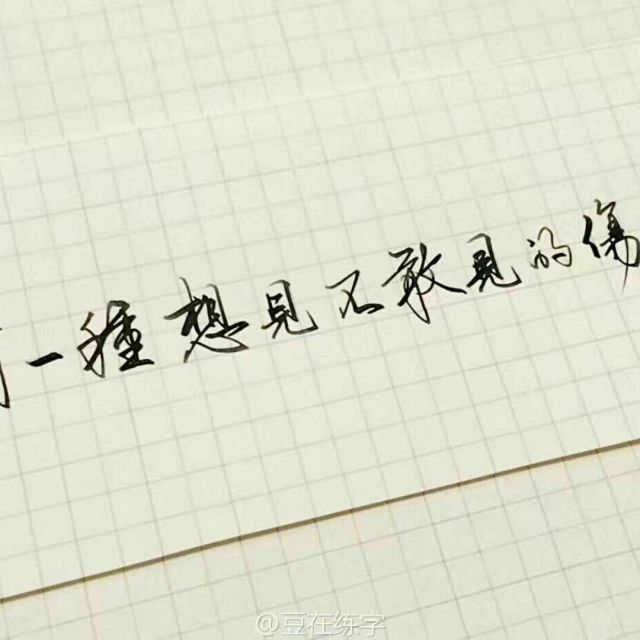 一種想見不敢見的傷
@豆在练字